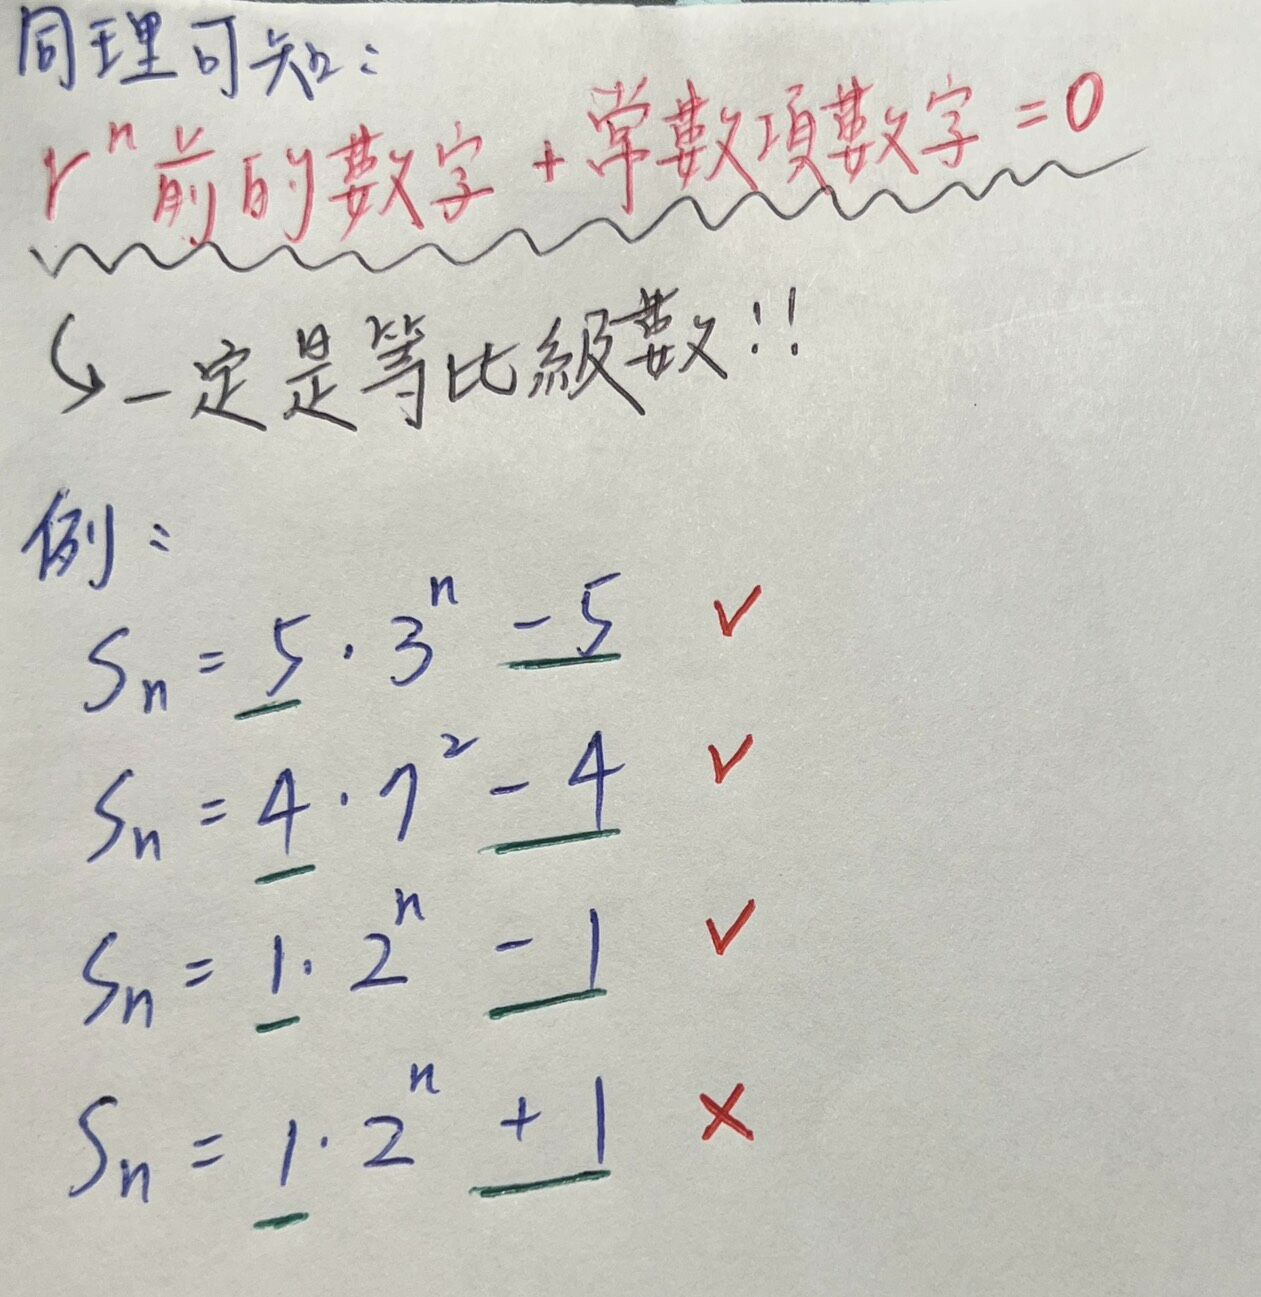 同理可知：
rⁿ前的數字+常數項數字=0
↳一定是等比級數!!
例：
Sn = 5·3ⁿ -5 ✓
Sn = 4·7² -4 ✓
Sn = 1·2ⁿ -1 ✓
Sn = 1·2ⁿ +1 ✗